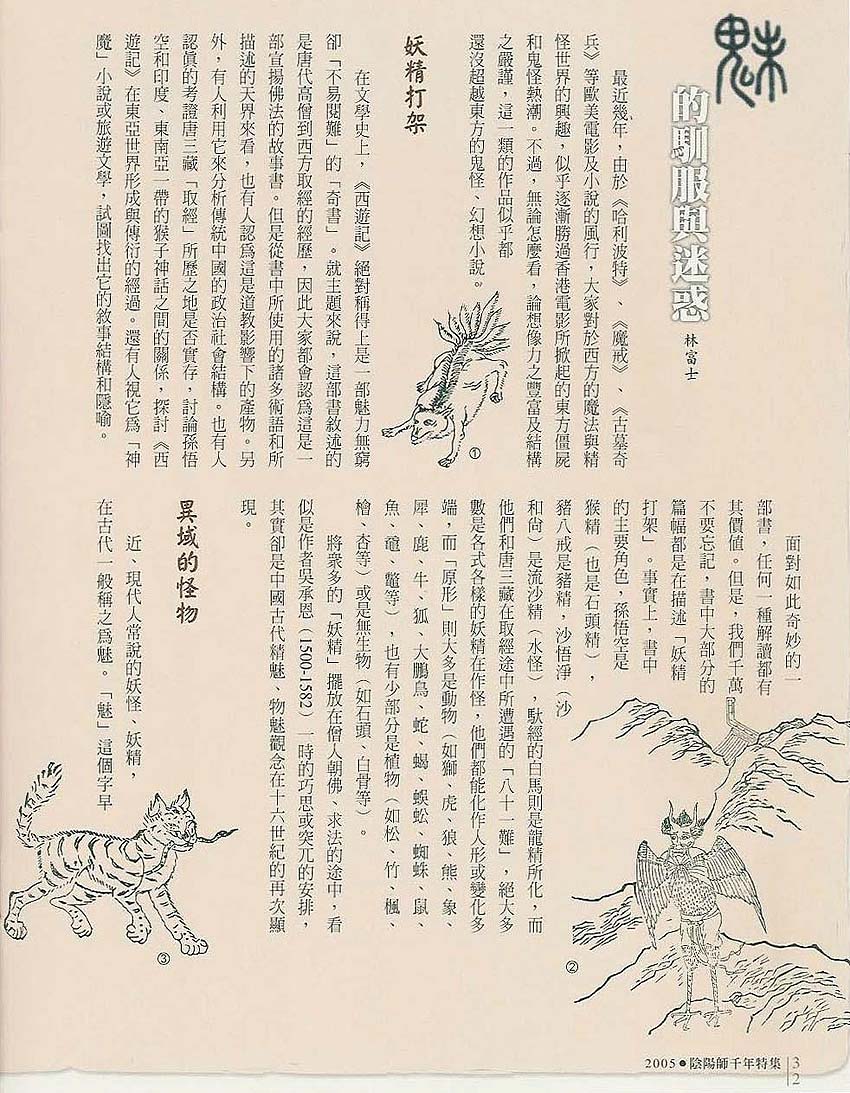 魅
的馴服與迷惑
林富士
最近幾年，由於《哈利波特》、《魔戒》、《古墓奇
兵》等歐美電影及小說的風行，大家對於西方的魔法與精
怪世界的興趣，似乎逐漸勝過香港電影所掀起的東方僵屍
和鬼怪熱潮。不過，無論怎麼看，論想像力之豐富及結構
之嚴謹，這一類的作品似乎都
還沒超越東方的鬼怪、幻想小說。
①
妖精打架
在文學史上，《西遊記》絕對稱得上是一部魅力無窮
卻「不易閱難」的「奇書」。就主題來說，這部書敘述的
是唐代高僧到西方取經的經歷，因此大家都會認爲這是一
部宣揚佛法的故事書。但是從書中所使用的諸多術語和所
描述的天界來看，也有人認爲這是道教影響下的產物。另
外，有人利用它來分析傳統中國的政治社會結構。也有人
認眞的考證唐三藏「取經」所歷之地是否實存，討論孫悟
空和印度、東南亞一帶的猴子神話之間的關係，探討《西
遊記》在東亞世界形成與傳衍的經過。還有人視它爲「神
魔」小說或旅遊文學，試圖找出它的敘事結構和隱喻。
面對如此奇妙的一
部書，任何一種解讀都有
其價値。但是，我們千萬
不要忘記，書中大部分的
篇幅都是在描述「妖精
打架」。事實上，書中
的主要角色，孫悟空是
猴精（也是石頭精），
豬八戒是豬精，沙悟淨（沙
和尙）是流沙精（水怪），馱經的白馬則是龍精所化，而
他們和唐三藏在取經途中所遭遇的「八十一難」，絕大多
數是各式各樣的妖精在作怪，他們都能化作人形或變化多
端，而「原形」則大多是動物（如獅、虎、狼、熊、象、
犀、鹿、牛、狐、大鵬鳥、蛇、蝎、蜈蚣、蜘蛛、鼠、
魚、黿、鼈等），也有少部分是植物（如松、竹、楓、
檜、杏等）或是無生物（如石頭、白骨等）。
將衆多的「妖精」擺放在僧人朝佛、求法的途中，看
似是作者吳承恩（1500-1582）一時的巧思或突兀的安排，
其實卻是中國古代精魅、物魅觀念在十六世紀的再次顯
現。
②
異域的怪物
近、現代人常說的妖怪、妖精，
在古代一般稱之爲魅。「魅」這個字早
③
2005●陰陽師千年特集
32